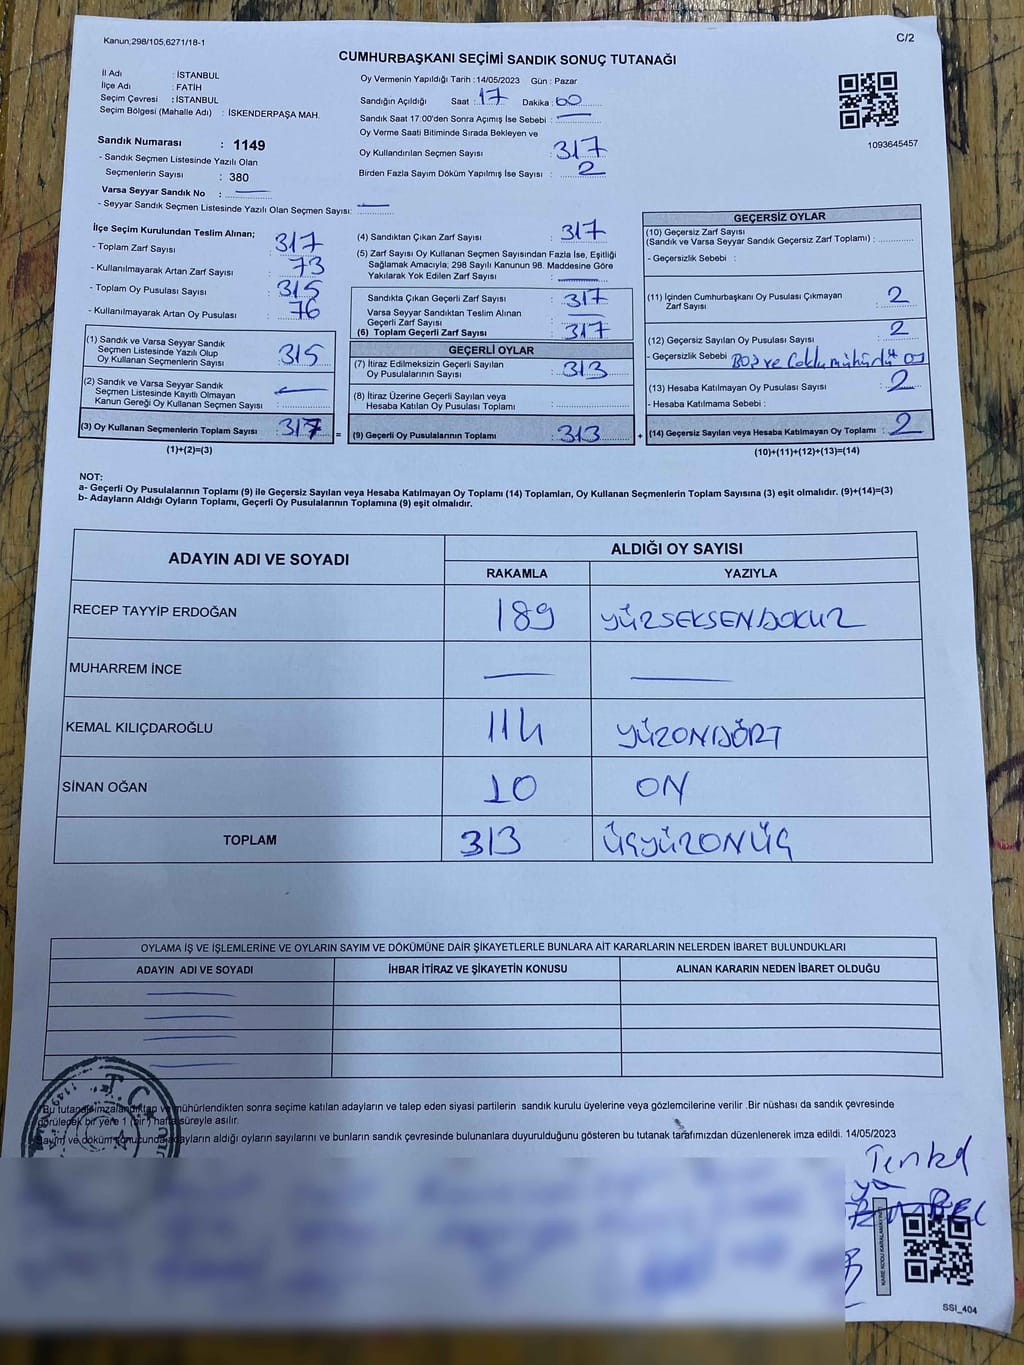 Kanun;298/105,6271/18-1
C/2
CUMHURBAŞKANI SEÇİMİ SANDIK SONUÇ TUTANAĞI
İl Adı : İSTANBUL
İlçe Adı : FATİH
Seçim Çevresi : İSTANBUL
Seçim Bölgesi (Mahalle Adı) : İSKENDERPAŞA MAH.
Sandık Numarası : 1149
- Sandık Seçmen Listesinde Yazılı Olan
Seçmenlerin Sayısı : 380
Varsa Seyyar Sandık No :
- Seyyar Sandık Seçmen Listesinde Yazılı Olan Seçmen Sayısı:
Oy Vermenin Yapıldığı Tarih : 14/05/2023 Gün : Pazar
Sandığın Açıldığı Saat : 17 Dakika : 60
Sandık Saat 17:00'den Sonra Açımış İse Sebebi :
Oy Verme Saati Bitiminde Sırada Bekleyen ve
Oy Kullandırılan Seçmen Sayısı : 317
Birden Fazla Sayım Döküm Yapılmış İse Sayısı : 2
1093645457
İlçe Seçim Kurulundan Teslim Alınan;
- Toplam Zarf Sayısı : 317
- Kullanılmayarak Artan Zarf Sayısı : 73
- Toplam Oy Pusulası Sayısı : 315
- Kullanılmayarak Artan Oy Pusulası : 76
(1) Sandık ve Varsa Seyyar Sandık
Seçmen Listesinde Yazılı Olup
Oy Kullanan Seçmenlerin Sayısı : 315
(2) Sandık ve Varsa Seyyar Sandık
Seçmen Listesinde Kayıtlı Olmayan
Kanun Gereği Oy Kullanan Seçmen Sayısı :
(3) Oy Kullanan Seçmenlerin Toplam Sayısı : 317
(1)+(2)=(3)
=
(4) Sandıktan Çıkan Zarf Sayısı : 317
(5) Zarf Sayısı Oy Kullanan Seçmen Sayısından Fazla İse, Eşitliği
Sağlamak Amacıyla; 298 Sayılı Kanunun 98. Maddesine Göre
Yakılarak Yok Edilen Zarf Sayısı :
Sandıkta Çıkan Geçerli Zarf Sayısı : 317
Varsa Seyyar Sandıktan Teslim Alınan
Geçerli Zarf Sayısı :
(6) Toplam Geçerli Zarf Sayısı : 317
GEÇERLİ OYLAR
(7) İtiraz Edilmeksizin Geçerli Sayılan
Oy Pusulalarının Sayısı : 313
(8) İtiraz Üzerine Geçerli Sayılan veya
Hesaba Katılan Oy Pusulası Toplamı :
(9) Geçerli Oy Pusulalarının Toplamı : 313
+
GEÇERSİZ OYLAR
(10) Geçersiz Zarf Sayısı
(Sandık ve Varsa Seyyar Sandık Geçersiz Zarf Toplamı) :
- Geçersizlik Sebebi :
(11) İçinden Cumhurbaşkanı Oy Pusulası Çıkmayan
Zarf Sayısı : 2
(12) Geçersiz Sayılan Oy Pusulası Sayısı : 2
- Geçersizlik Sebebi : Boş ve Çoklu mühürlü oy
(13) Hesaba Katılmayan Oy Pusulası Sayısı : 2
- Hesaba Katılmama Sebebi :
(14) Geçersiz Sayılan veya Hesaba Katılmayan Oy Toplamı : 2
(10)+(11)+(12)+(13)=(14)
NOT:
a- Geçerli Oy Pusulalarının Toplamı (9) ile Geçersiz Sayılan veya Hesaba Katılmayan Oy Toplamı (14) Toplamları, Oy Kullanan Seçmenlerin Toplam Sayısına (3) eşit olmalıdır. (9)+(14)=(3)
b- Adayların Aldığı Oyların Toplamı, Geçerli Oy Pusulalarının Toplamına (9) eşit olmalıdır.
ADAYIN ADI VE SOYADI ALDIĞI OY SAYISI
RAKAMLA YAZIYLA
RECEP TAYYİP ERDOĞAN 189 YÜZSEKSENDOKUZ
MUHARREM İNCE
KEMAL KILIÇDAROĞLU 114 YÜZONDÖRT
SİNAN OĞAN 10 ON
TOPLAM 313 ÜÇYÜZONÜÇ
OYLAMA İŞ VE İŞLEMLERİNE VE OYLARIN SAYIM VE DÖKÜMÜNE DAİR ŞİKAYETLERLE BUNLARA AİT KARARLARIN NELERDEN İBARET BULUNDUKLARI
ADAYIN ADI VE SOYADI İHBAR İTİRAZ VE ŞİKAYETİN KONUSU ALINAN KARARIN NEDEN İBARET OLDUĞU
T.C.
1149
Bu tutanak imzalandıktan ve mühürlendikten sonra seçime katılan adayların ve talep eden siyasi partilerin sandık kurulu üyelerine veya gözlemcilerine verilir .Bir nüshası da sandık çevresinde
görülecek bir yere 1 (bir) hafta süreyle asılır.
Sayım ve döküm sonucunda adayların aldığı oyların sayılarını ve bunların sandık çevresinde bulunanlara duyurulduğunu gösteren bu tutanak tarafımızdan düzenlenerek imza edildi. 14/05/2023
KARE KODU KARALAMAYINIZ
SSI_404